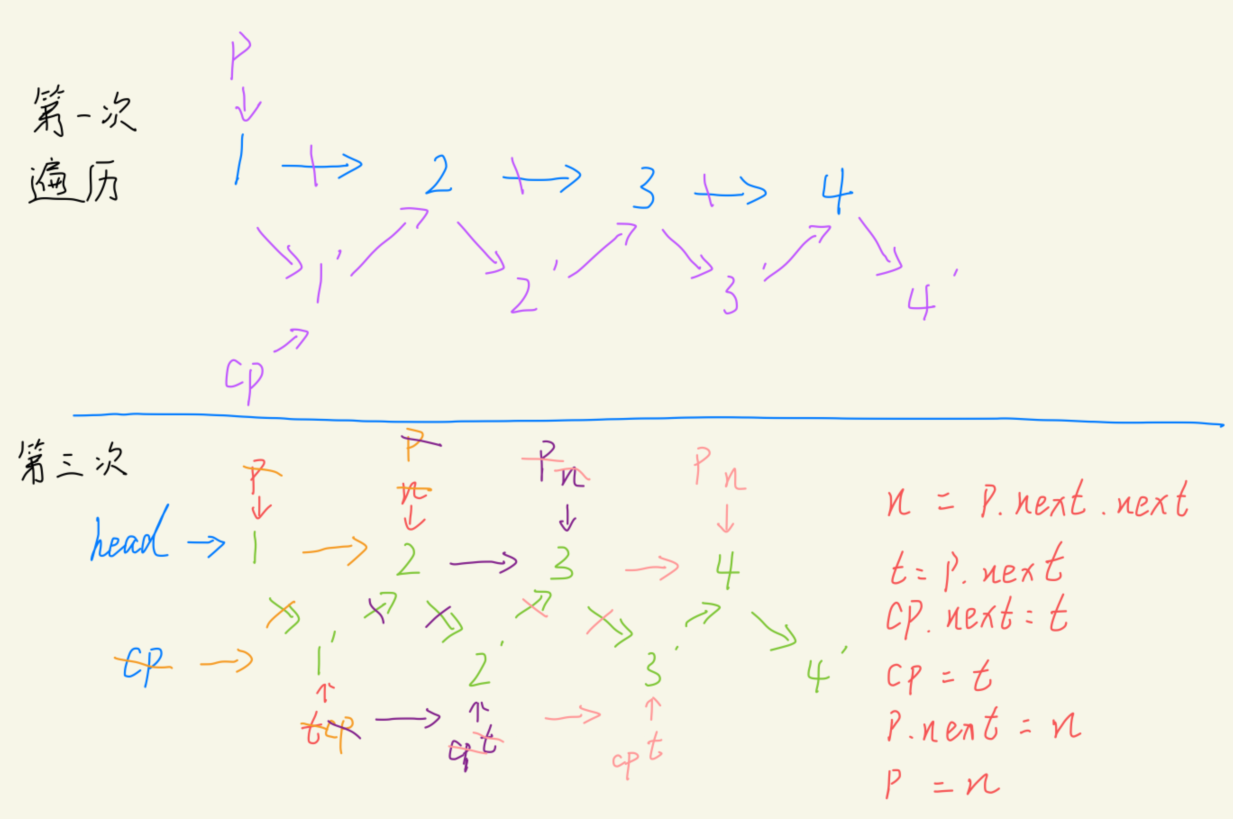 P
第一次
遍历
1 2 3 4
1' 2' 3' 4'
cp
第三次
P P P n P n
n
head 1 2 3 4
cp 1' 2' 3' 4'
t cp cp t cp t
n = P.next.next
t = P.next
CP.next = t
CP = t
P.next = n
P = n